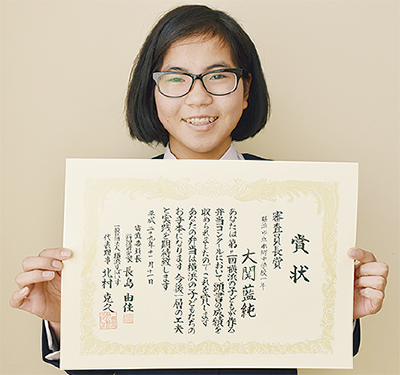 賞状
審査員長賞
横浜市立本町小学校一年
大関藍純
あなたは第二回横浜の子どもが作る
弁当コンクールにおいて頭書の成績を
収められましたのでこれを賞します
あなたの弁当は横浜の子どもたちの
お手本になります今後一層の工夫
と実践を期待致します
平成二十九年十一月十一日
審査委員長
長島由佳
代表理事
北村克久